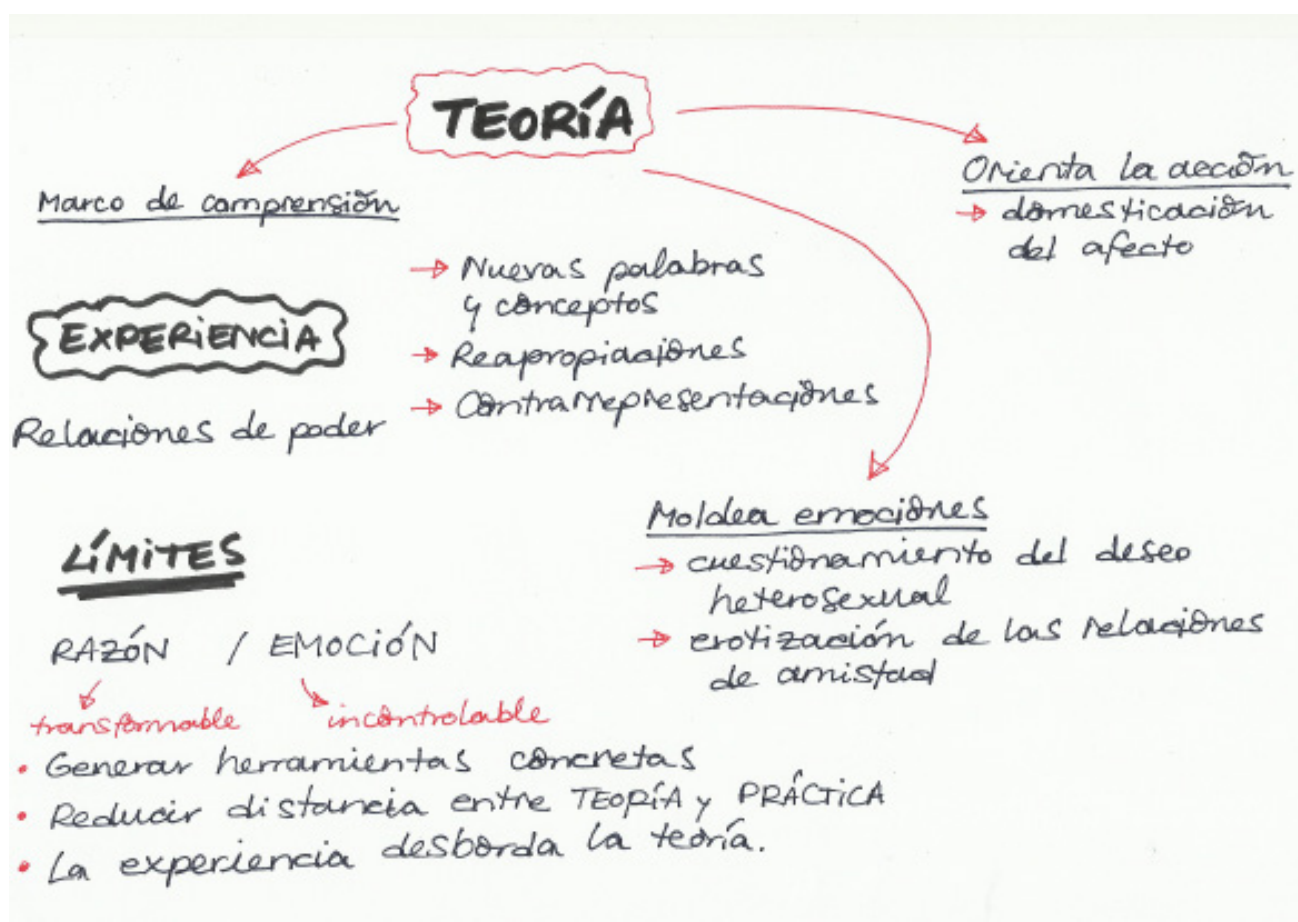 TEORÍA
Marco de comprensión
Orienta la acción
→ domesticación
del afecto
EXPERIENCIA
Relaciones de poder
→ Nuevas palabras
y conceptos
→ Reapropiaciones
→ Contrarrepresentaciones
Moldea emociones
→ cuestionamiento del deseo
heterosexual
→ erotización de las relaciones
de amistad
LÍMITES
RAZÓN / EMOCIÓN
transformable incontrolable
• Generar herramientas concretas
• Reducir distancia entre TEORÍA y PRÁCTICA
• La experiencia desborda la teoría.